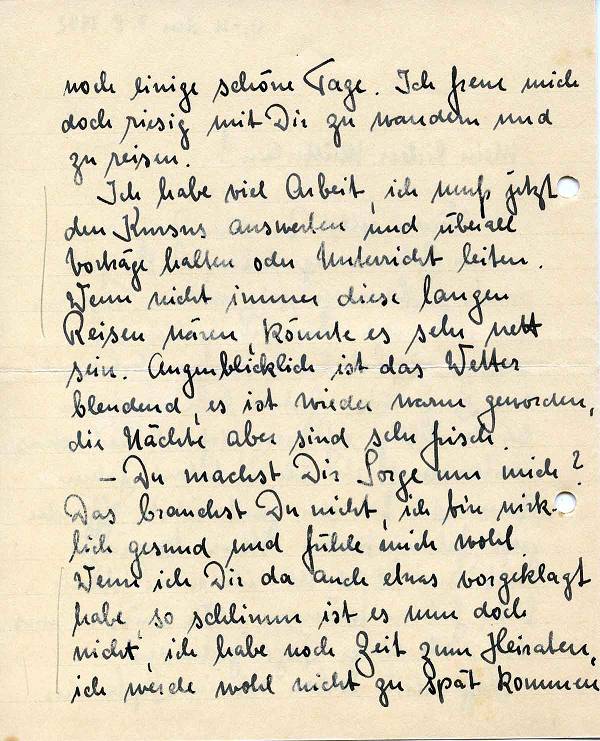 noch einige schöne Tage. Ich freue mich
doch riesig mit Dir zu wandern und
zu reisen.
Ich habe viel Arbeit, ich muß jetzt
den Kursus auswerten und überall
Vorträge halten oder Unterricht leiten.
Wenn nicht immer diese langen
Reisen wären, könnte es sehr nett
sein. Augenblicklich ist das Wetter
blendend, es ist wieder warm geworden,
die Nächte aber sind sehr frisch.
– Du machst Dir Sorge um mich?
Das brauchst Du nicht, ich bin wirk-
lich gesund und fühle mich wohl.
Wenn ich Dir da auch etwas vorgeklagt
habe, so schlimm ist es nun doch
nicht, ich habe noch Zeit zum Heiraten,
ich werde wohl nicht zu spät kommen